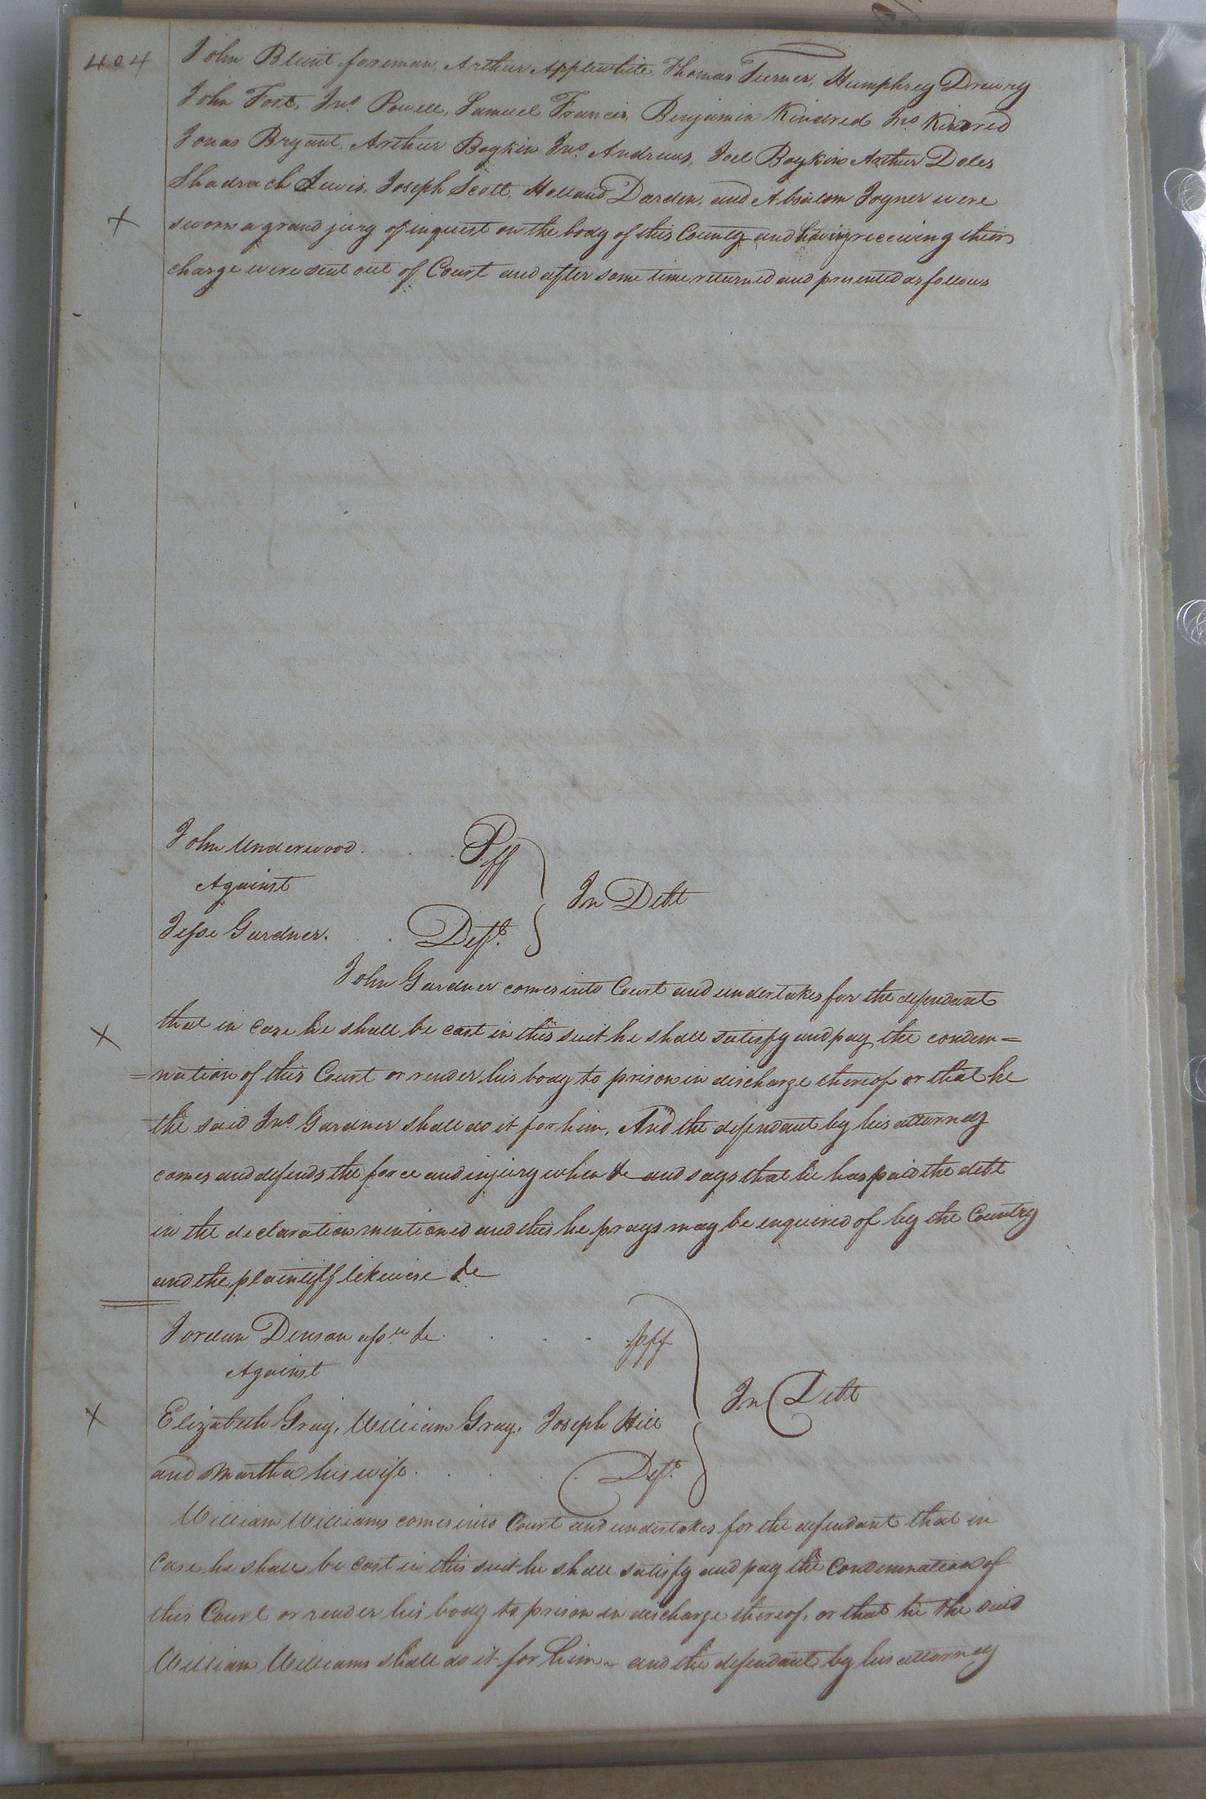 404
John Blunt foreman, Arthur Applewhite, Thomas Turner, Humphrey Drewry
John Fort, Jnº Powell, Samuel Francis, Benjamin Kindred Jnº Kindred
Jonas Bryant, Arthur Boykin Jnº Andrews, Joel Boykin Arthur Doles
Shadrach Lewis, Joseph Scott, Holland Darden, and Absalom Joyner were
sworn a grand jury of inquest on the body of this County and having receiving their
charge were sent out of Court and after some time returned and presented as follows
John Underwood. Pff
Against
In Debt
Jesse Gardner. Deft.
John Gardner comes into Court and undertakes for the defendant
that in case he shall be cast in this suit he shall satisfy and pay the condem=
=nation of this Court or render his body to prison in discharge thereof or that he
the said Jnº Gardner shall do it for him, And the defendant by his attorney
comes and defends the force and injury when &c and says that he has paid the debt
in the declaration mentioned and this he prays may be enquired of by the Country
and the plaintiff likewise &c
Jordan Denson assee &c. pff
Against
In Debt
Elizabeth Gray, William Gray, Joseph Hill
and Martha his wife. Defts
William Williams comes into Court and undertakes for the defendant that in
case he shall be cast in this suit he shall satisfy and pay the Condemnation of
this Court or render his body to prison in discharge thereof, or that he the said
William Williams shall do it for him and the defendant by his attorney